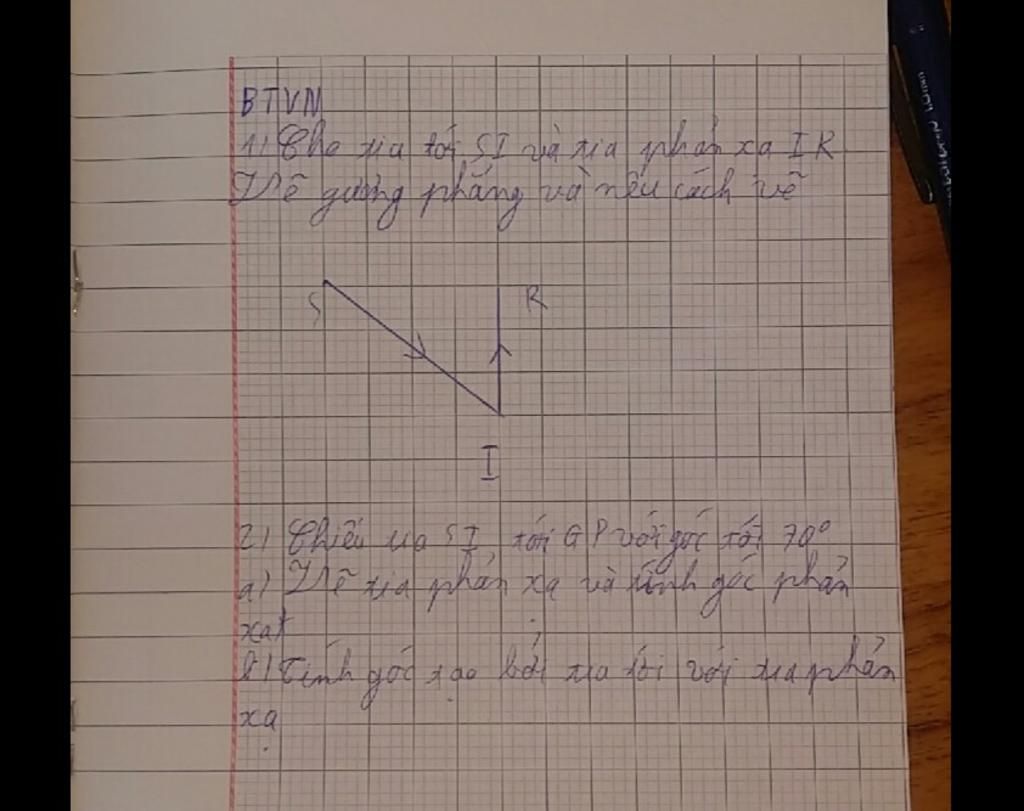 BTVN
1) Cho tia tới SI và tia phản xạ IR
Vẽ gương phẳng và nêu cách vẽ
S
R
I
2) Chiếu tia SI tới GP với góc tới 70°
a) Vẽ tia phản xạ và tính góc phản
xạ
b) Tính góc tạo bởi tia tới với tia phản
xạ